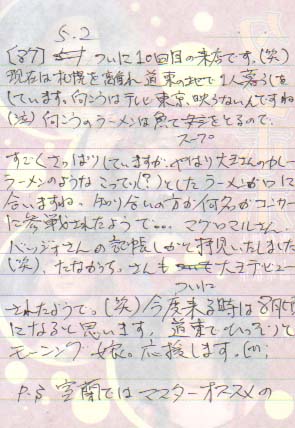 5.2
(87) ついに10回目の来店です。(笑)
現在は札幌を離れ 道東の地で1人暮らしを
しています。向こうはテレビ東京、映らないんですね
(泣) 向こうのラーメンは魚でスープをとるので、
すごくさっぱりしていますが、やはり大王さんのカレー
ラーメンのような こってり(?)とした ラーメンが口に
合いますね。知り合いの方が何名かココに
に参戦されたようで… マクロマルさん、
バッジオさんの記帳しかと拝見いたしました
(笑)、たなかっち。さんも ついに 大王デビュー
されたようで。(笑) 今度来る時は8月
になると思います。道東で ひっそりと
モーニング娘。応援します。
P.S 室蘭では マスターオススメの